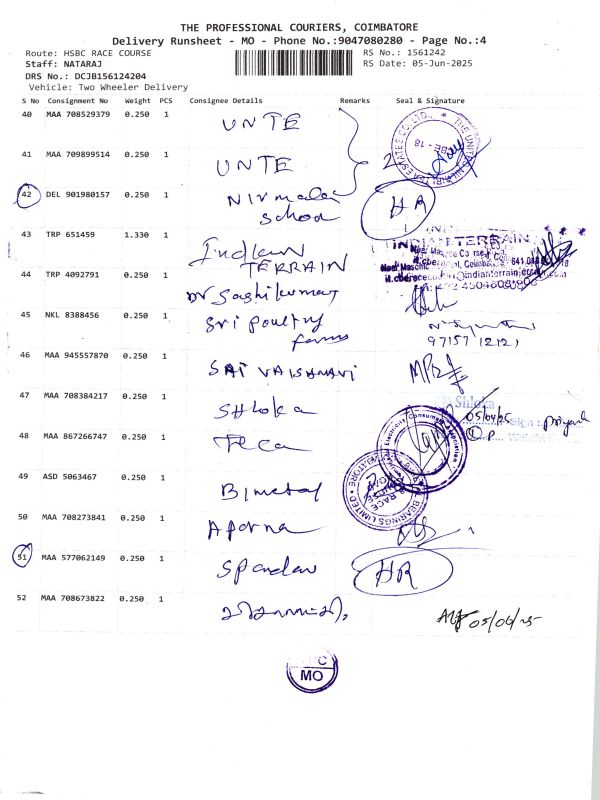 THE PROFESSIONAL COURIERS, COIMBATORE
Delivery Runsheet - MO - Phone No.:9047080280 - Page No.:4
Route: HSBC RACE COURSE RS No.: 1561242
Staff: NATARAJ RS Date: 05-Jun-2025
DRS No.: DCJB156124204
Vehicle: Two Wheeler Delivery
S No Consignment No Weight PCS Consignee Details Remarks Seal & Signature
40 MAA 708529379 0.250 1 UNTE
41 MAA 709899514 0.250 1 UNTE 2
42 DEL 901980157 0.250 1 Nirmala HR
School
43 TRP 651459 1.330 1 Indian
TERRAIN INDIAN TERRAIN
44 TRP 4092791 0.250 1 Dr Sashikumar
45 NKL 8388456 0.250 1 Sri Poultry
farms 97157 12121
46 MAA 945557870 0.250 1 SAI VAISHNAVI
47 MAA 708384217 0.250 1 Shloka Shloka
05/06/25 Priyanka
48 MAA 867266747 0.250 1 Teca
49 ASD 5063467 0.250 1 Bimetal BEARINGS LIMITED
50 MAA 708273841 0.250 1 Aparna
51 MAA 577062149 0.250 1 Spandan HR
52 MAA 708673822 0.250 1 05/06/25
MO